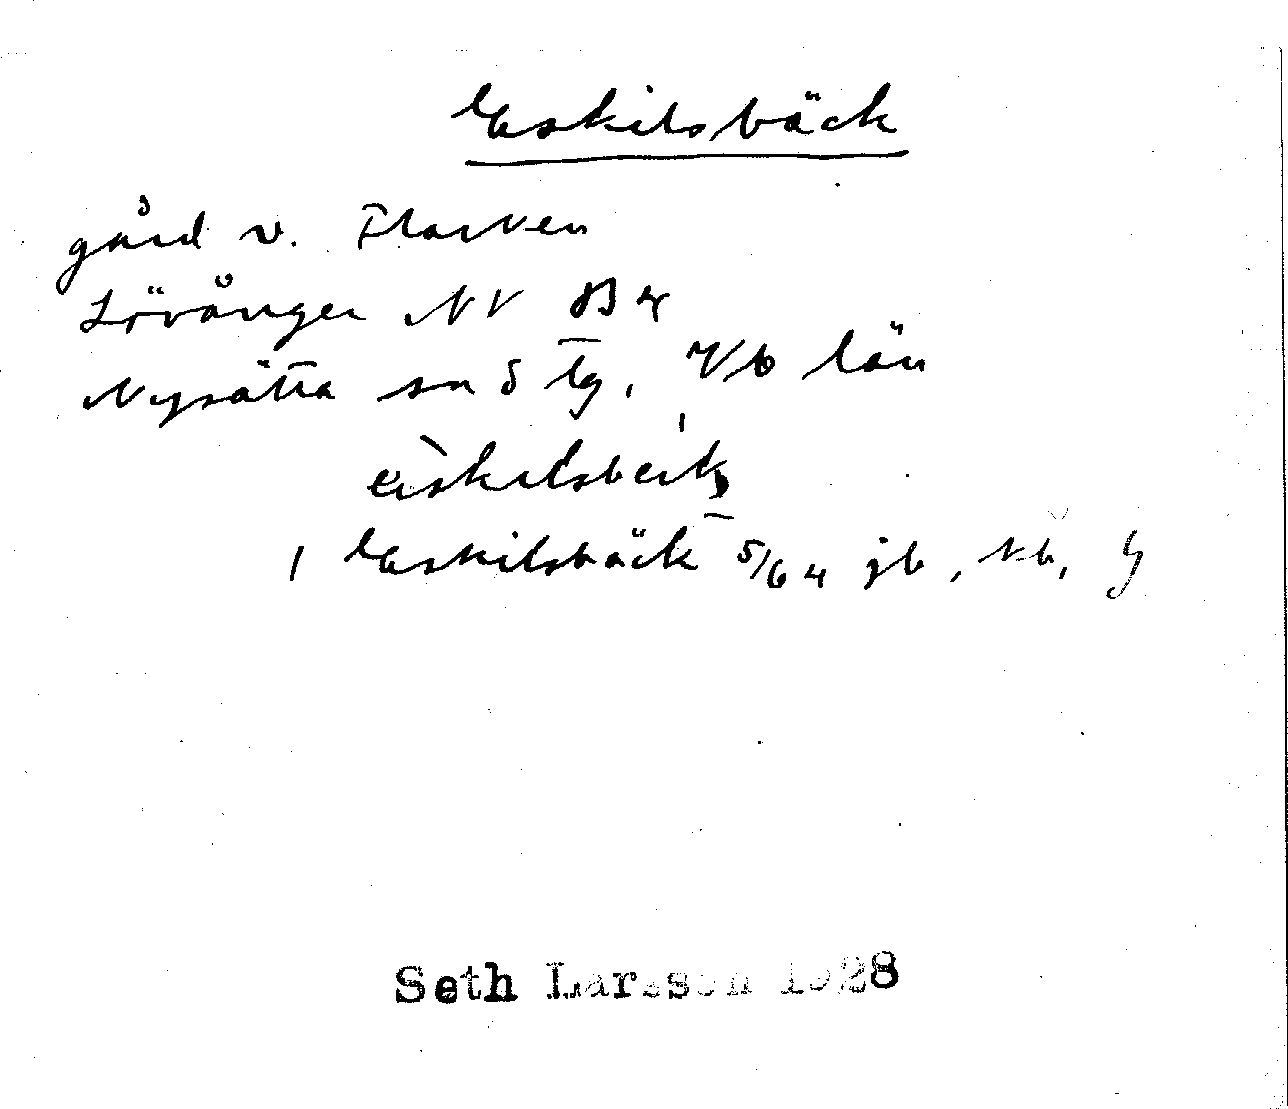 Eskilsbäck
gård v. Flarken
Lövånger NV B4
Nysätra sn S tg, Vb län
eiskilsbeik
1 Eskilsbäck 5/64 jb,
Seth Larsson 1928